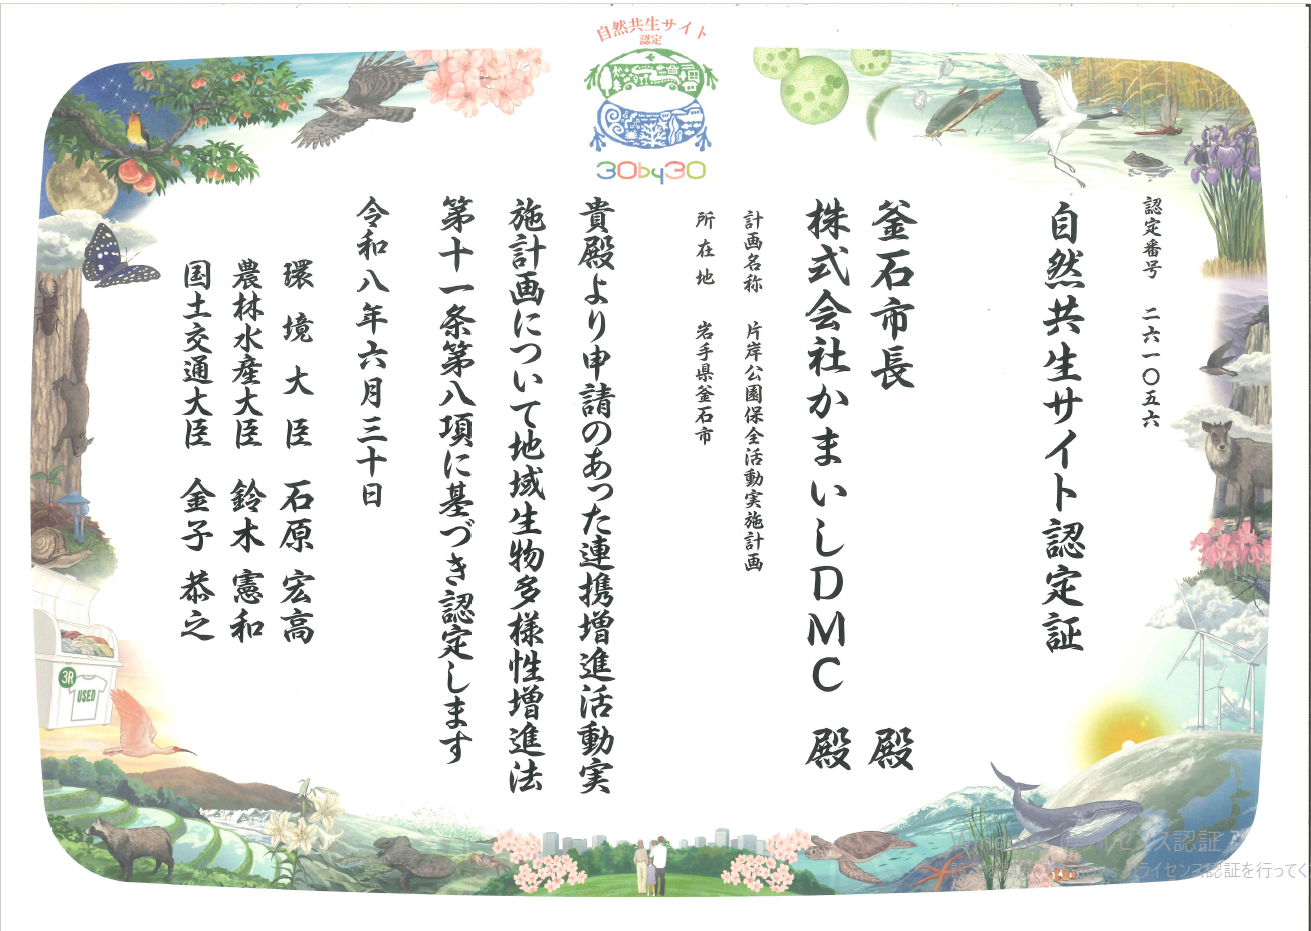 自然共生サイト
認定
30by30
認定番号 二六一〇五六
自然共生サイト認定証
釜石市長 殿
株式会社かまいしDMC 殿
計画名称 片岸公園保全活動実施計画
所在地 岩手県釜石市
貴殿より申請のあった連携増進活動実
施計画について地域生物多様性増進法
第十一条第八項に基づき認定します
令和八年六月三十日
環境大臣 石原 宏高
農林水産大臣 鈴木 憲和
国土交通大臣 金子 恭之
3R
USED
ライセンス認証を行ってく